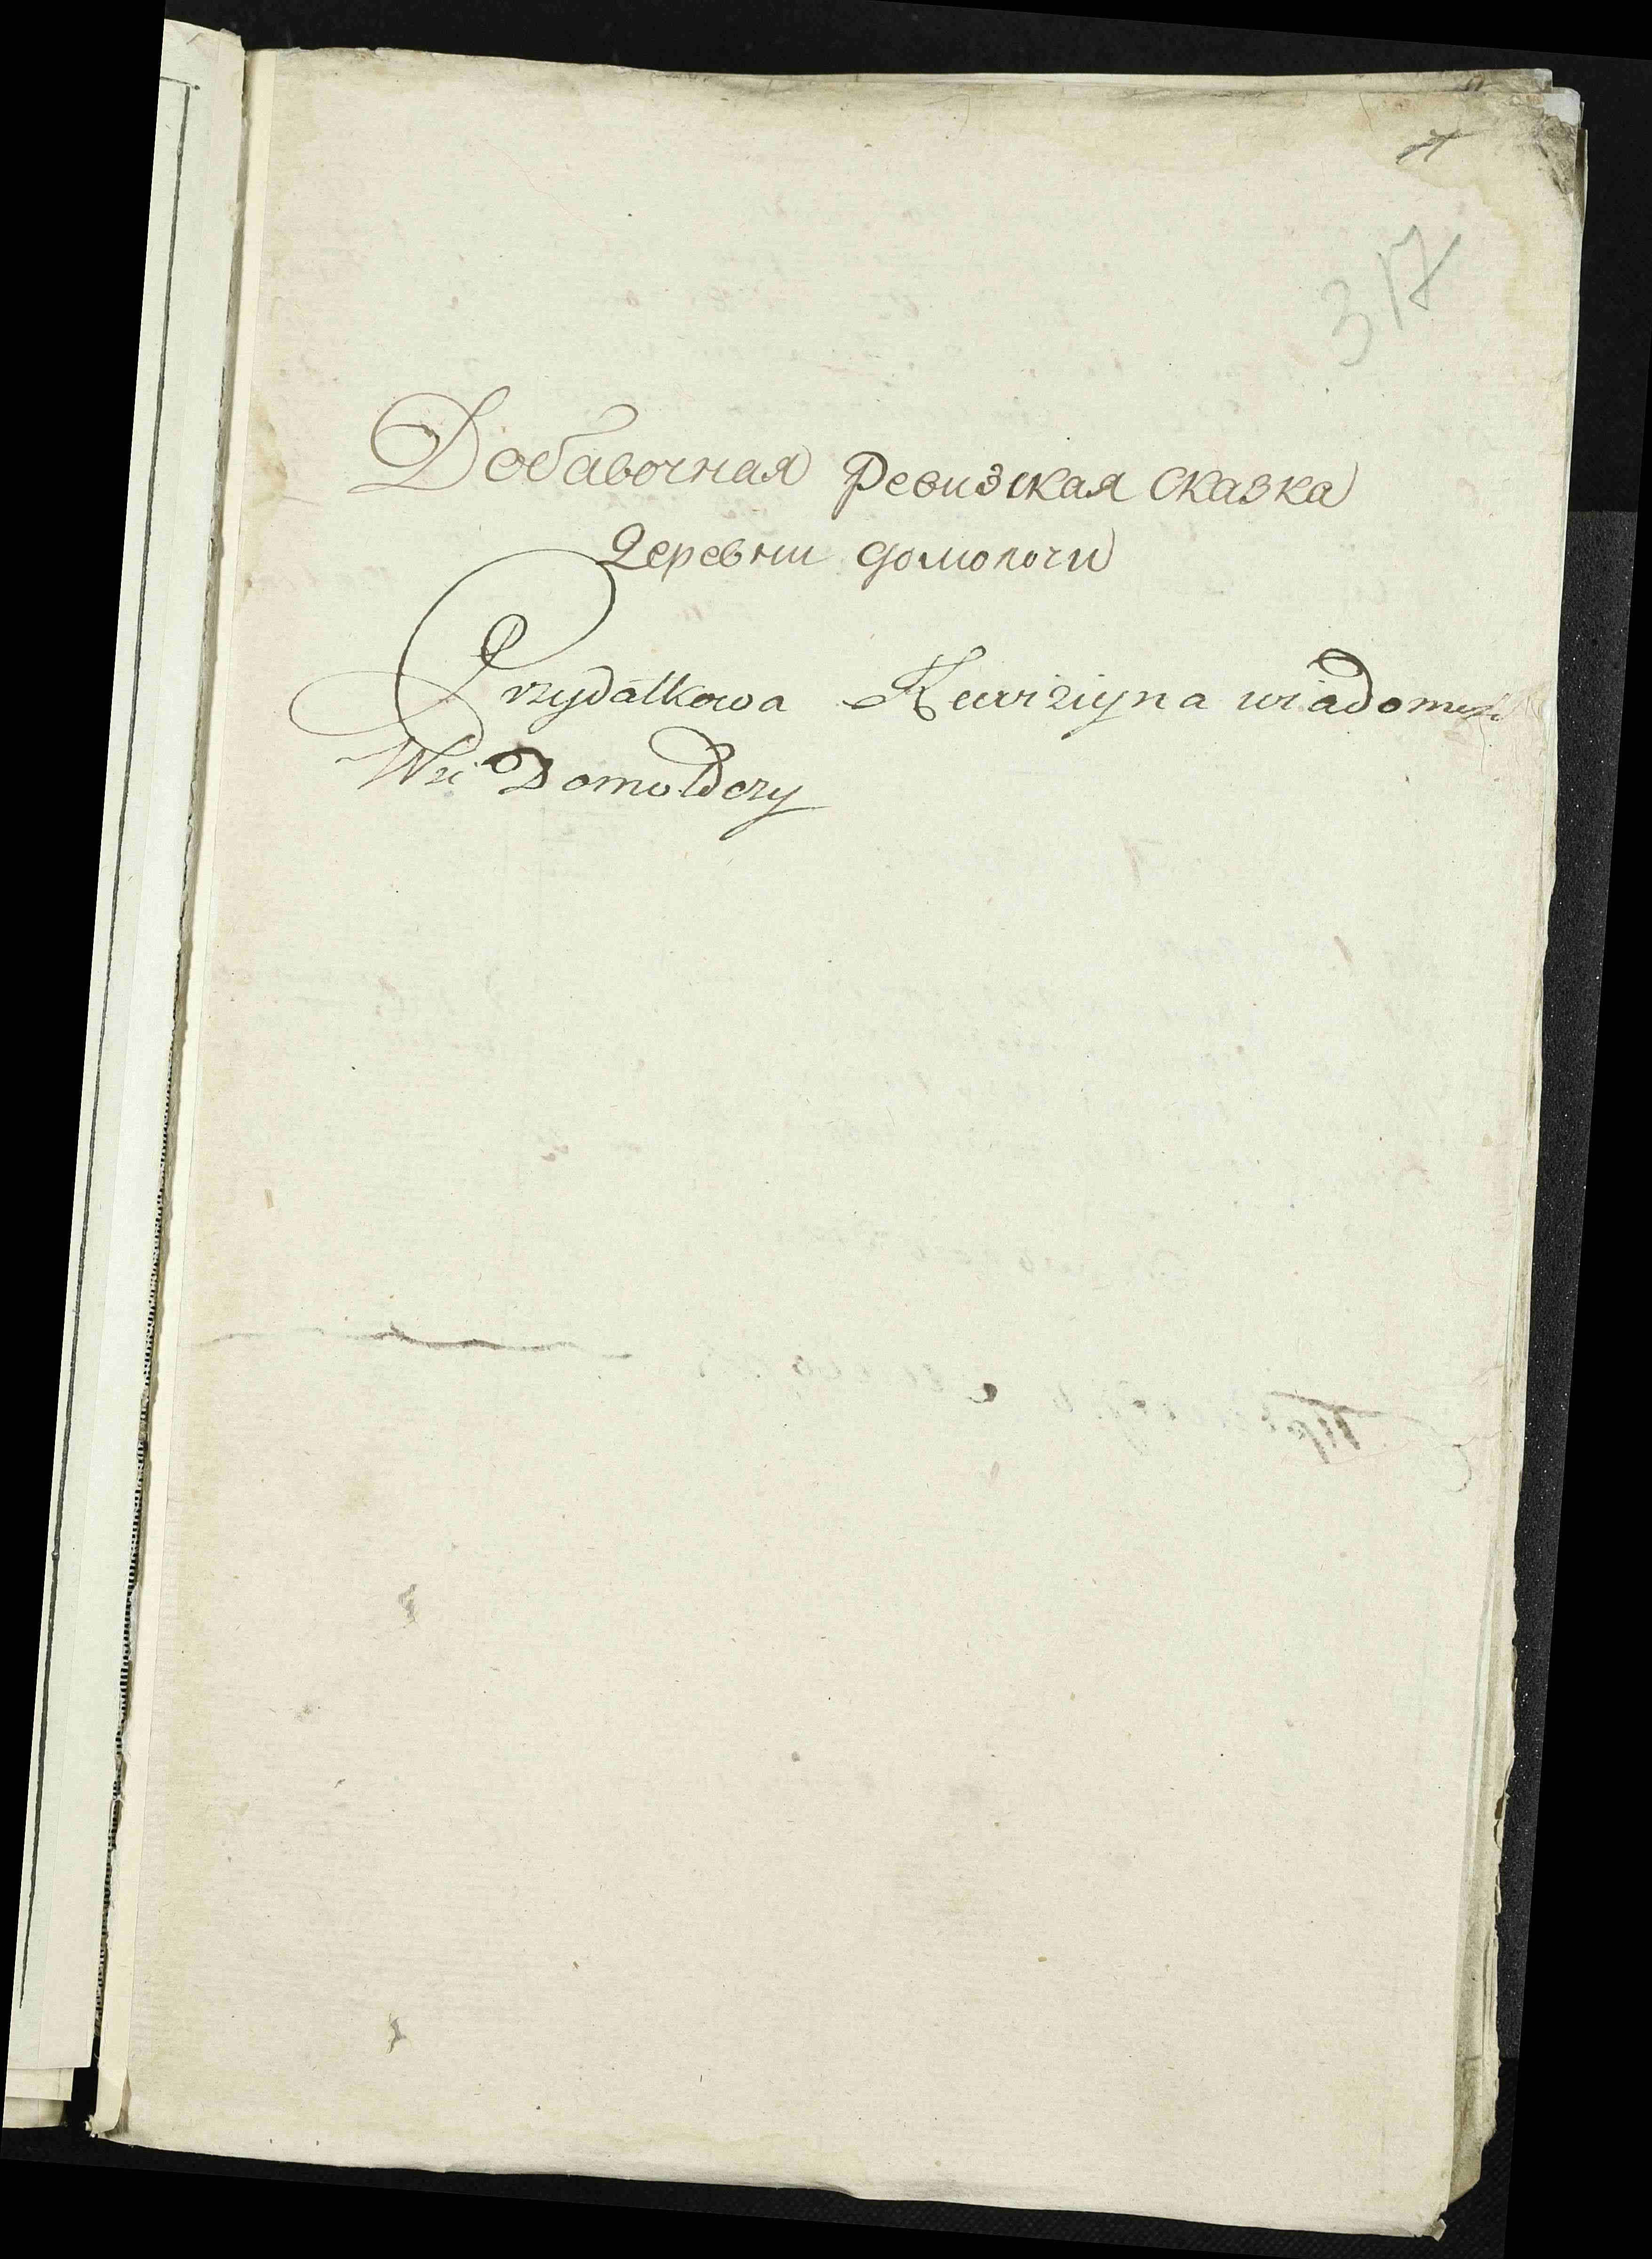 317
Добавочная ревизская сказка
деревни домолочи
Przydatkowa Rewizyina wiadomość
Wsi Domoloczy